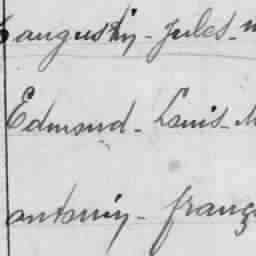 augustin - Jules -
Edmond - Louis - M
antonin - franç